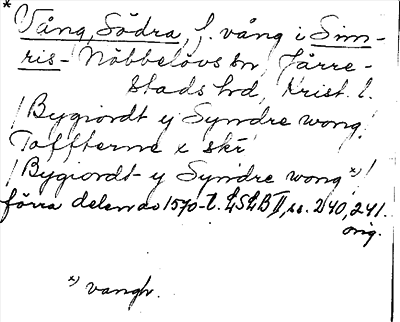 *
Vång, Södra, f. vång i Sim-
ris-Nöbbelövs sn, Järre-
stads hd, Krist. l.
/Bygiordt y Syndre wong/
Toffterne x ski
/Bygiordt y Syndre wong *)/
förra delen av 1570-t. LSLB II, ss. 240, 241.
orig.
*) vangh.